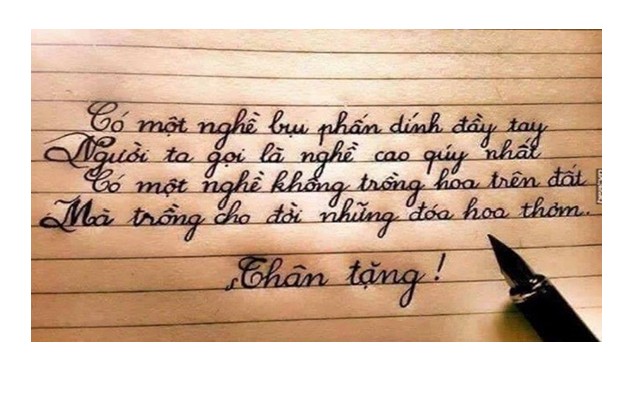 Có một nghề bụi phấn dính đầy tay
Người ta gọi là nghề cao quý nhất
Có một nghề không trồng hoa trên đất
Mà trồng cho đời những đóa hoa thơm..
Thân tặng!